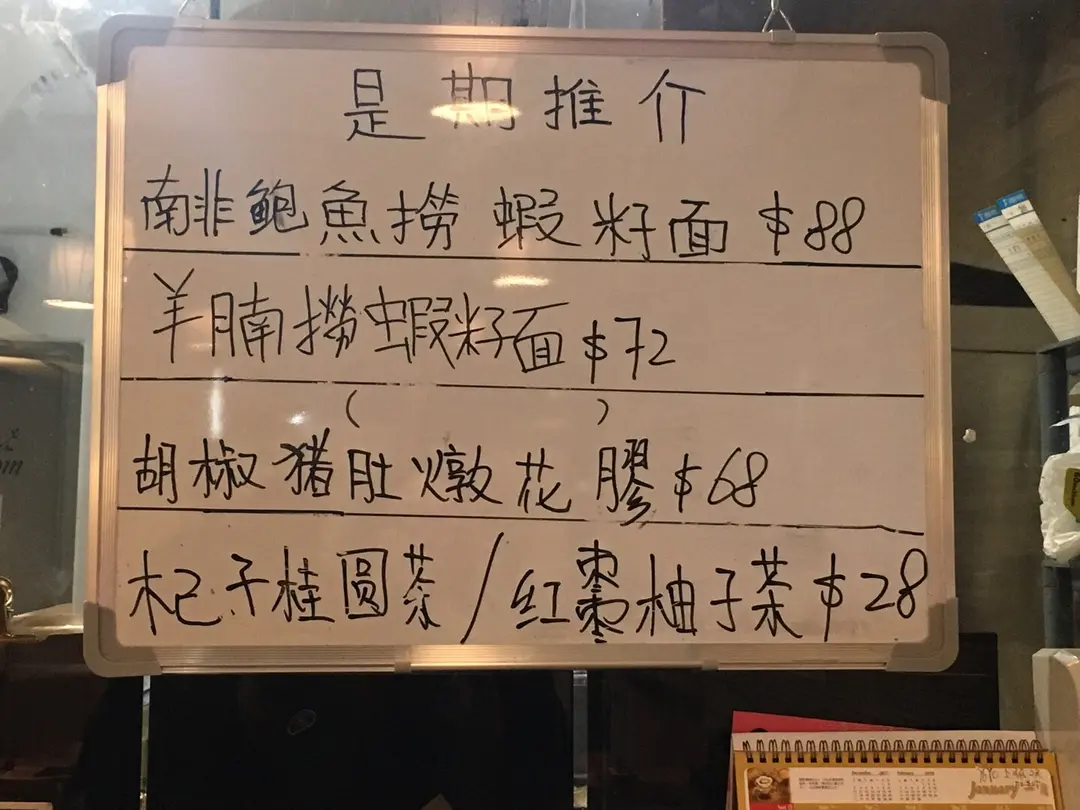 是期推介
南非鮑魚撈蝦籽面 $88
羊腩撈蝦籽面 $72
( )
胡椒豬肚燉花膠 $68
杞子桂圓茶/红棗柚子茶 $28
December
February